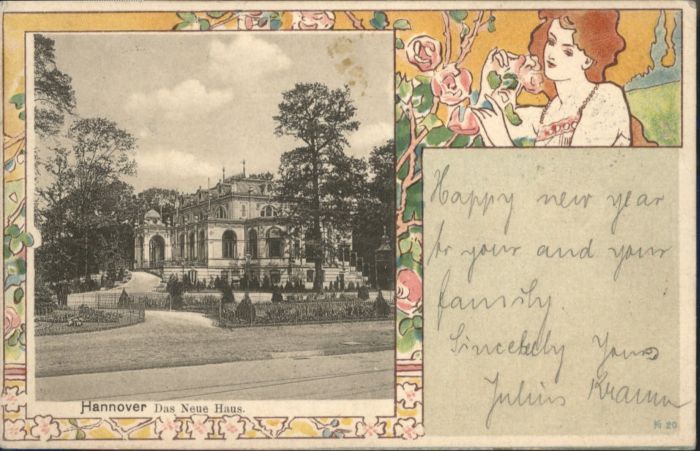 Hannover Das Neue Haus.
Happy new year
to your and your
family
Sincerely Yours
Julius
20